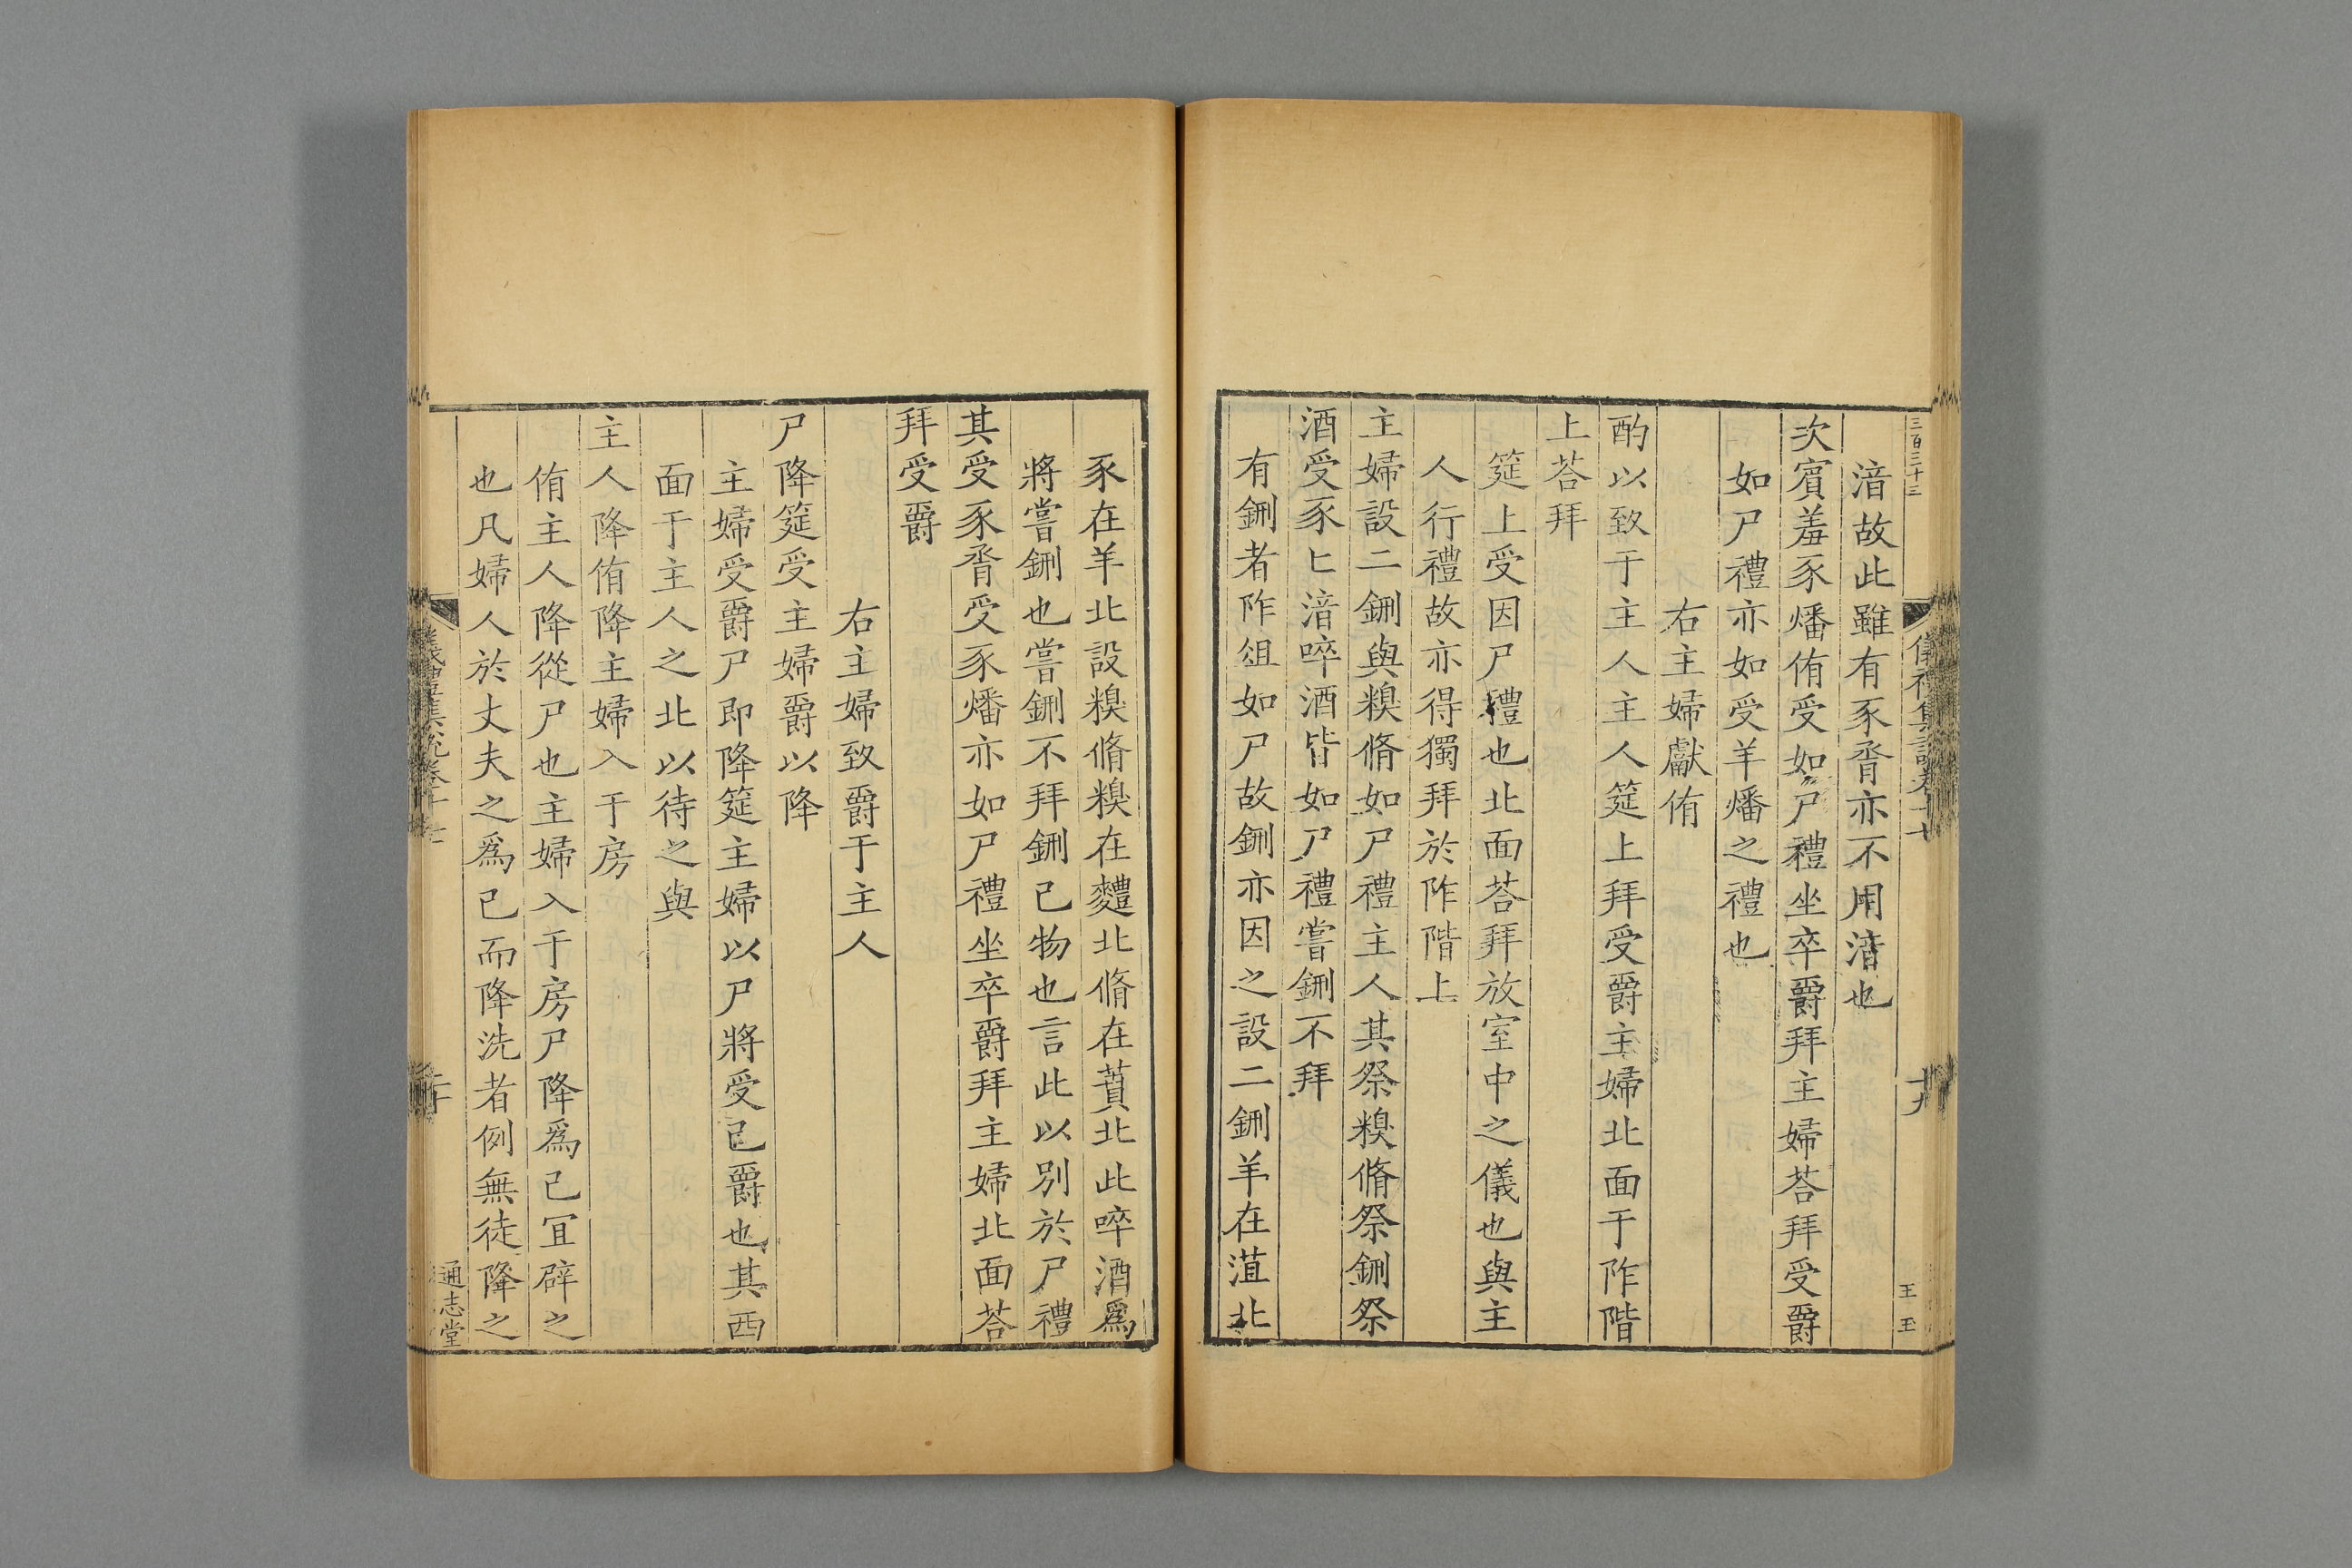 三百三十三
儀禮集說卷十七
十九
王玉
湆故此雖有豕脀亦不用湇也
次賓羞豕燔侑受如尸禮坐卒爵拜主婦荅拜受爵
如尸禮亦如受羊燔之禮也
右主婦獻侑
酌以致于主人主人筵上拜受爵主婦北面于阼階
上荅拜
筵上受因尸禮也北面荅拜放室中之儀也與主
人行禮故亦得獨拜於阼階上
主婦設二鉶與糗脩如尸禮主人其祭糗脩祭鉶祭
酒受豕匕湆啐酒皆如尸禮嘗鉶不拜
有鉶者阼俎如尸故鉶亦因之設二鉶羊在菹北
豕在羊北設糗脩糗在麷北脩在蕡北此啐酒爲
將嘗鉶也嘗鉶不拜鉶已物也言此以別於尸禮
其受豕脀受豕燔亦如尸禮坐卒爵拜主婦北面荅
拜受爵
右主婦致爵于主人
尸降筵受主婦爵以降
主婦受爵尸即降筵主婦以尸將受已爵也其西
面于主人之北以待之與
主人降侑降主婦入于房
侑主人降從尸也主婦入于房尸降爲已宜辟之
也凡婦人於丈夫之爲已而降洗者例無徒降之
儀禮集說卷十七
二十
通志堂